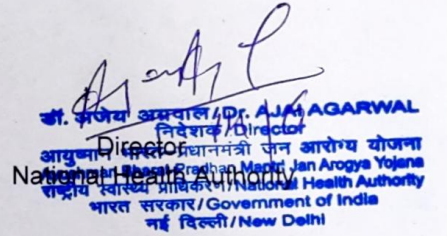 डॉ. अजेय अग्रवाल/Dr. AJAI AGARWAL
निदेशक/Director
Director
आयुष्मान भारत प्रधानमंत्री जन आरोग्य योजना
Ayushman Bharat Pradhan Mantri Jan Arogya Yojana
National Health Authority
राष्ट्रीय स्वास्थ्य प्राधिकरण/National Health Authority
भारत सरकार/Government of India
नई दिल्ली/New Delhi